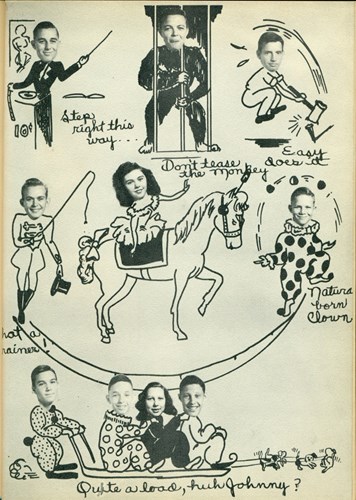 10¢
Step
right this
way....
Don't tease
the monkey
Easy
does it
Natural
born
Clown
hot a
rainer!
Quite a load, huh Johnny?